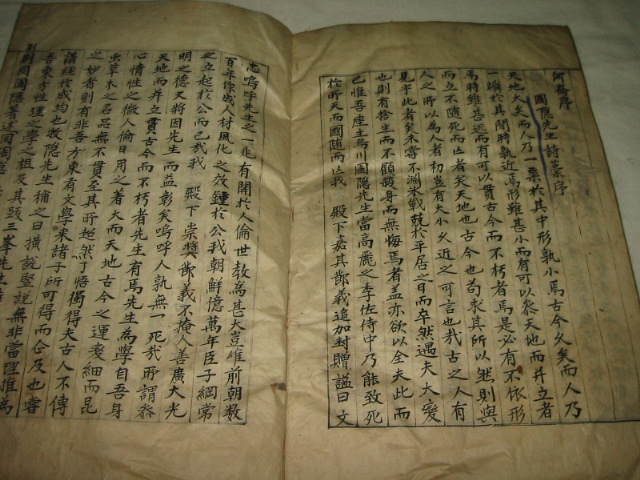 河崙序
圃隱先生詩藁序
天地大矣而人乃一粟於其中形孰小焉古今久矣而人乃
一瞬於其間時孰近焉形雖甚小而有可以叅天地而并立者
焉時雖甚近而有可以貫古今而不朽者焉是必有不依形
而立不隨死而亡者矣天地也古今也苟求其所以然則與
人之所以爲人者初豈有大小久近之可言也哉古之人有
見乎此者矣未嘗不淵氷戰兢於平居之日而卒然遇夫大變
也則有捨生而不顧殺身而無悔焉者盖亦欲以全夫此而
已惟吾座主烏川圃隱先生當高麗之季佐侍中乃能致死
於所天而國隨而亡我 殿下嘉其節義追加封贈謚曰文
忠嗚呼先生之一死有關於人倫世教爲甚大豈唯前朝數
百年作成人材風化之效鍾於公我朝鮮億萬年臣子綱常
之立起於公而已哉我 殿下崇奬節義不掩人善廣大光
明之德又將因先生而益彰矣嗚呼人孰無一死哉所謂叅
天地而并立貫古今而不朽者先生有焉先生爲學自吾身
心情性之微人倫日用之著大而天地古今之運變細而昆
虫草木之名品無不貫至其所超然了悟獨得夫古人不傳
之妙者則有非吾方東有文學來諸子所可得而企及也嘗
講經於成均也牧隱先生稱之曰橫說竪說無非當理推爲
吾東方性理之學之祖及其跋三峯先生